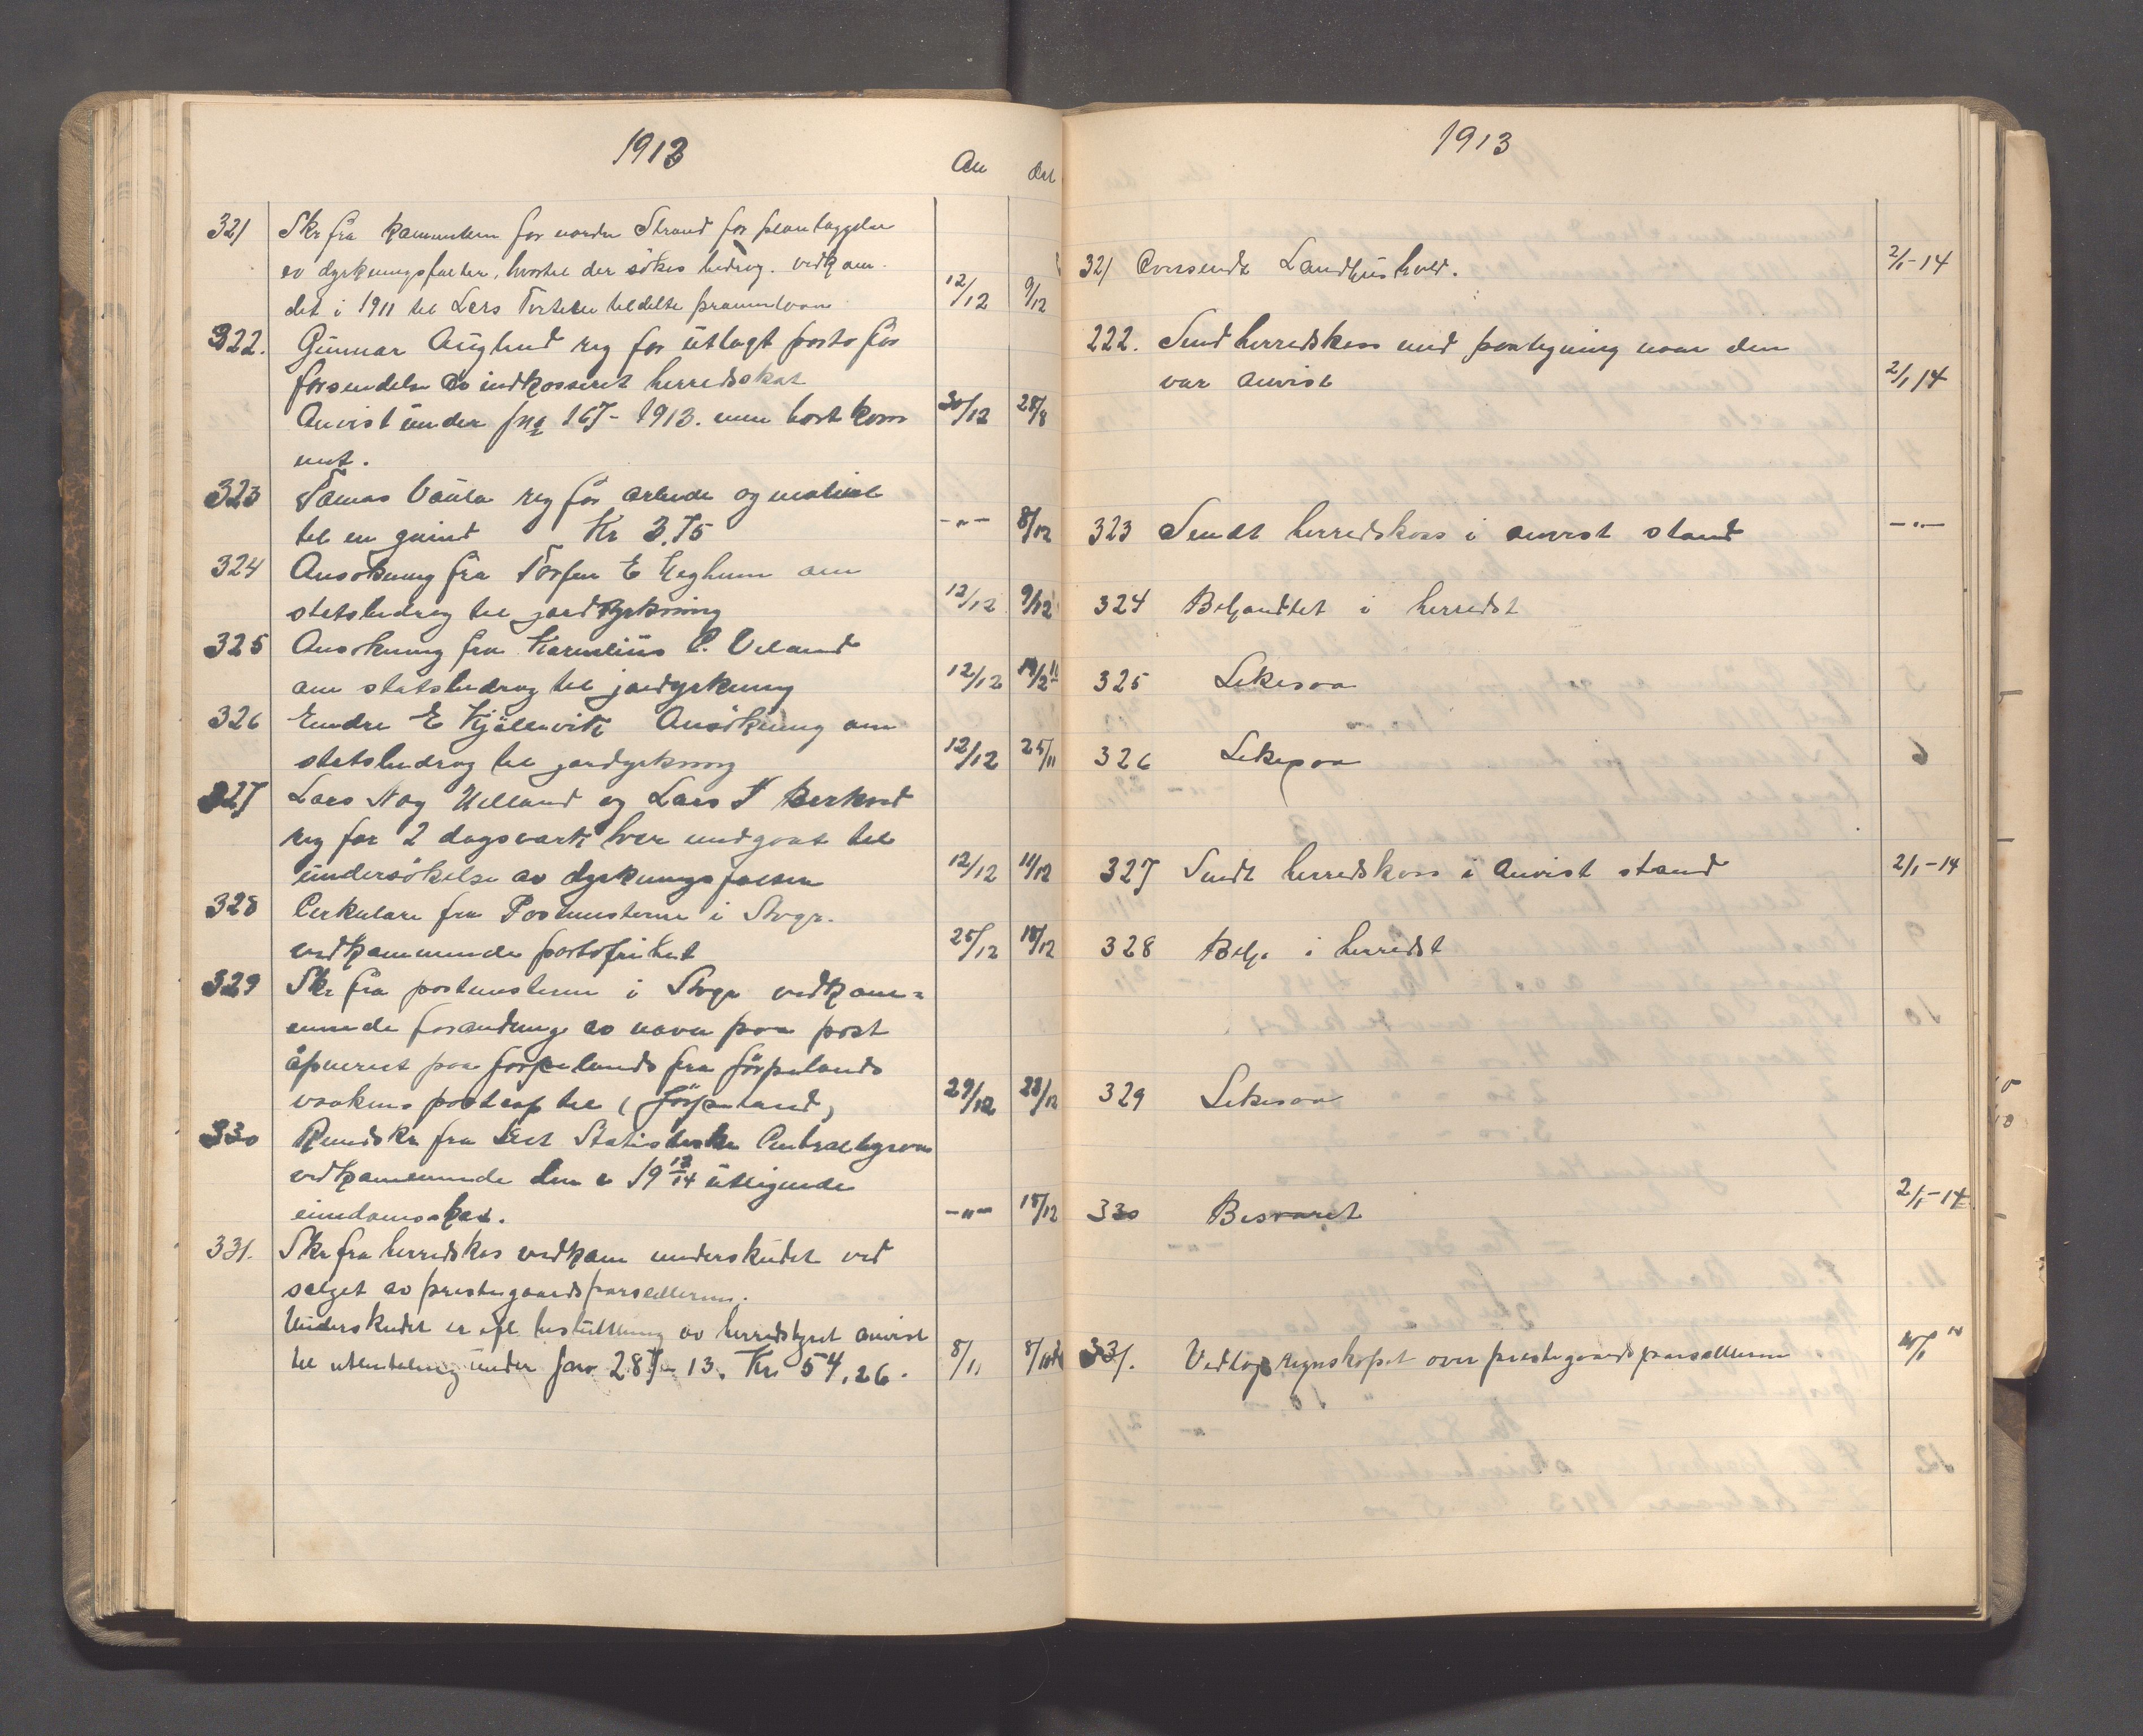 1913
An dat
321 Skr fra for nordre Strand for planlæggelse
av dyrkningsfælter, hvortil der søkes bidrag. vedkom.
det i 1911 til Lars tildelte 12/12 9/12
322. Gunnar Auglend reg for utlagt porto for
forsendelse av indkasseret herredsskat
Anvist under jno 167-1913. men bortkom 30/12 28/8
met.
323 Tomas Vaula reg for arbeide og material
til en grind Kr 3.75 -"- 8/12
324 Ansøkning fra Torfin E Heghum om
statsbidrag til jorddyrkning 12/12 9/12
325 Ansøkning fra Kornelius P. Veland
om statsbidrag til jordyrkning 12/12
326 Endre E Kjølevik Ansøkning om
statsbidrag til jordyrkning 12/12 25/11
327 Lars Nag Helland og Lars T Barkved
reg for 2 dagsverk hver medgaat til
undersøkelse av dyrkningsfælter 12/12 11/12
328 Cirkulære fra Postmesteren i Stvgr.
vedkommende portofrihet 25/12 18/12
329 Skr fra postmesteren i Stvgr vedkom=
mende forandring av navn paa post
åpneriet paa Jørpeland fra Jørpelands
vaakens posteksp til (Jørpeland) 29/12 23/12
330 Rundskr fra Det Statistiske Centralbyraa
vedkommende den i 19 13/14 utlignede
eiendomsskat. -"- 15/12
331. Skr fra herredskas vedkom underskudet ved
salget av prestegaardsparsellerne.
Underskudet er efl beslutning av herredstyret anvist
til utbetaling under jno 287-13. Kr 54,26. 8/11
1913
321 Oversendt Landhushold. 2/1-14
222. Send herredskass med paategning naar den
var anvist 2/1 14
323 Sendt herredskass i anvist stand -"-
324 Behandlet i herredst
325 Likesaa
326 Likesaa
327 Sendt herredskass i anvist stand 2/1-14
328 Beh. i herredst
329 Likesaa
330 Besvaret 2/1-14
331. Vedlagt regnskapet over prestegaardsparsellerne